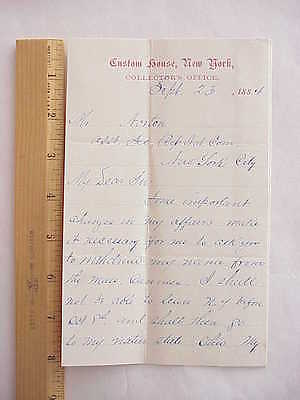 Custom House, New York,
COLLECTOR'S OFFICE.
Sept. 23, 1884
Mr Acton
New York City
My Dear Sir
Some important
changes in my affairs make
it necessary for me to ask you
to withdraw my name from
the Canvass. I shall
not be able to leave N.Y before
Oct 8th. and shall then go
to my native state Ohio. My